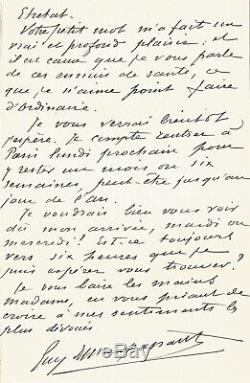 Etretat.
Votre petit mot m'a fait un
vrai et profond plaisir; et
il est cause que je vous parle
de ces ennuis de santé, ce
que je n'aime point faire
d'ordinaire.
Je vous verrai bientôt
j'espère. Je compte rentrer à
Paris lundi prochain pour
y rester un mois ou six
semaines, peut-être jusqu'au
jour de l'an.
Je voudrais bien vous voir
dès mon arrivée, mardi ou
mercredi! Est-ce toujours
vers six heures que je
puis espérer vous trouver?
Je vous baise les mains
madame, en vous priant de
croire à mes sentiments les
plus dévoués
Guy de Maupassant